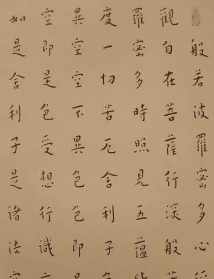 般若波羅蜜多心
觀自在菩薩行深般
羅蜜多時照見五蘊
度一切苦厄舍利子
異空空不異色色即
空即是色受想行識
如是舍利子是諸法空